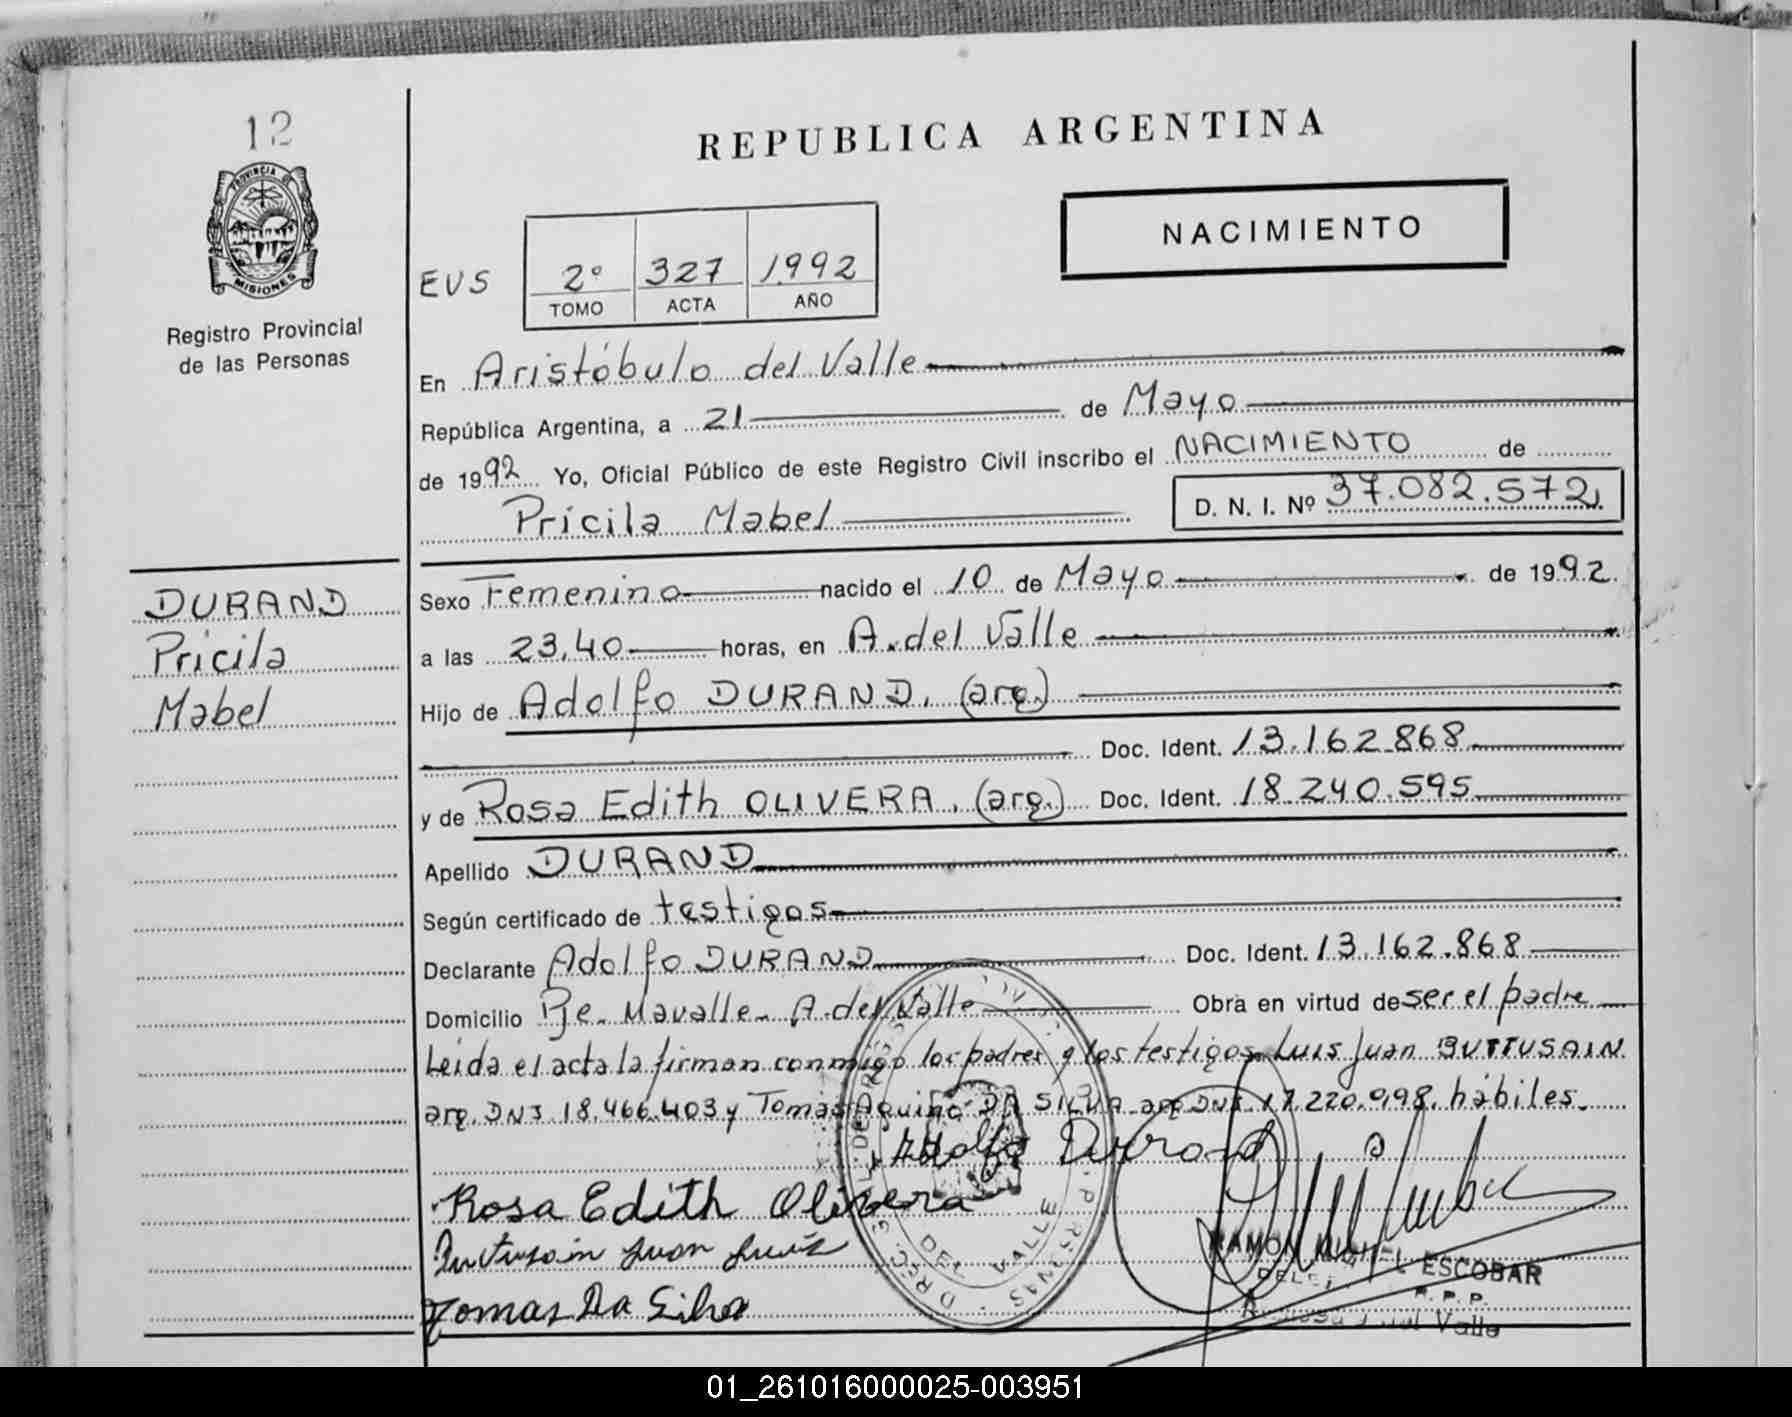 12
PROVINCIA DE
MISIONES
Registro Provincial
de las Personas
REPUBLICA ARGENTINA
NACIMIENTO
EVS 2º 327 1.992
TOMO ACTA AÑO
En Aristóbulo del Valle
República Argentina, a 21 de Mayo
de 1992 Yo, Oficial Público de este Registro Civil inscribo el NACIMIENTO de
Pricila Mabel D. N. I. Nº 37.082.572
DURAND
Pricila
Mabel
Sexo Femenino nacido el 10 de Mayo de 1992.
a las 23,40 horas, en A. del Valle
Hijo de Adolfo DURAND. (arg.)
Doc. Ident. 13.162.868
y de Rosa Edith OLIVERA. (arg.) Doc. Ident. 18.240.595
Apellido DURAND
Según certificado de testigos
Declarante Adolfo DURAND Doc. Ident. 13.162.868
Domicilio Pje. Mavalle- A. del Valle Obra en virtud de ser el padre
Leída el acta la firman conmigo los padres y los testigos Luis Juan BUTTUSAIN
arg. DNI 18.466.403 y Tomás Aquino DA SILVA arg DNI 17.220.998. hábiles.
Adolfo Durand
Rosa Edith Olivera
Buttusain Juan Luis
Tomas Da Silva
DEL VALLE
RAMON MIGUEL ESCOBAR
R.P.P.
Valle
01_261016000025-003951